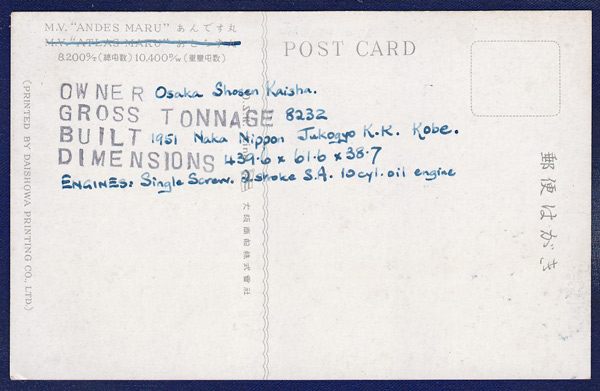 M.V. "ANDES MARU" あんです丸
M.V. "ATLAS MARU"
8,200 G/T (總屯数) 10,400 D/W (重量屯数)
POST CARD
OWNER Osaka Shosen Kaisha.
GROSS TONNAGE 8232
BUILT 1951 Naka Nippon Jukogyo K.K. Kobe.
DIMENSIONS 439.6 x 61.6 x 38.7
ENGINES: Single Screw. 2 stroke S.A. 10 cyl. oil engine
(PRINTED BY DAISHOWA PRINTING CO., LTD.)
大阪商船株式會社
郵便はがき